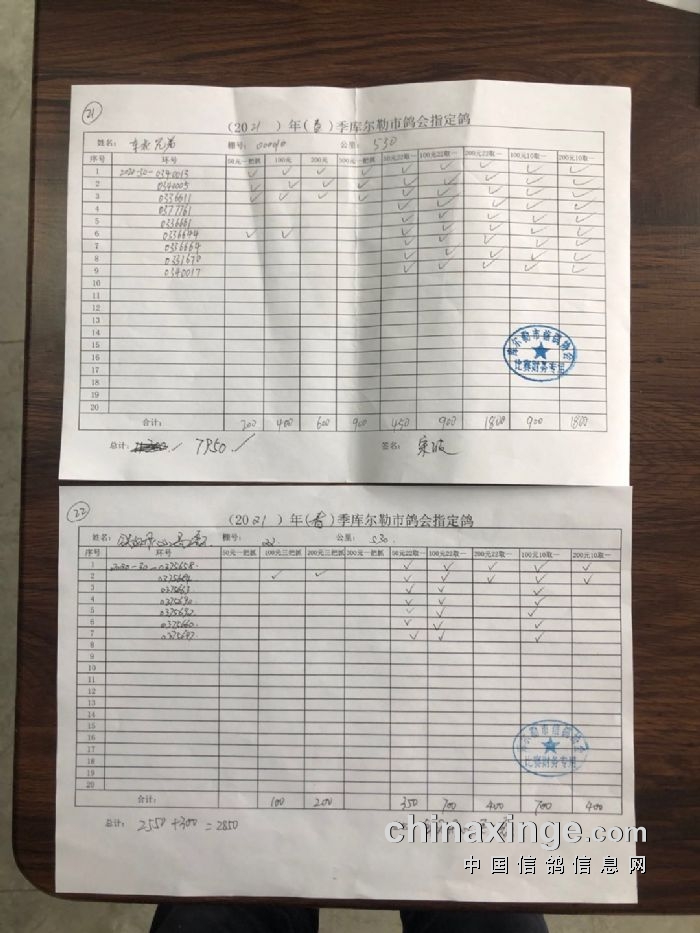 21
(2021)年(春)季库尔勒市鸽会指定鸽
姓名: 棚号: 公里: 530
序号 环号 50元一把抓 100元 200元 300元一把抓 50元22取一 100元22取一 200元22取一 100元10取一 200元10取一
1 2020-30-0340013 ✓ ✓ ✓ ✓ ✓ ✓ ✓ ✓ ✓
2 0340005 ✓ ✓ ✓ ✓ ✓ ✓ ✓ ✓ ✓
3 0336611 ✓ ✓ ✓ ✓ ✓ ✓ ✓ ✓ ✓
4 0377761 ✓ ✓ ✓ ✓ ✓
5 0336661 ✓ ✓ ✓ ✓ ✓
6 0336644 ✓ ✓ ✓ ✓ ✓ ✓ ✓
7 0336664 ✓ ✓ ✓ ✓ ✓
8 0331670 ✓ ✓ ✓ ✓ ✓
9 0340017 ✓ ✓ ✓ ✓ ✓
10
11
12
13
14
15
16
17
18
19
20
库尔勒市信鸽协会
比赛财务专用
合计: 200 400 600 900 450 900 1800 900 1800
总计: 7950 签名:
22
(2021)年(春)季库尔勒市鸽会指定鸽
姓名: 棚号: 22 公里: 530.
序号 环号 50元一把抓 100元三把抓 200元三把抓 300元一把抓 50元22取一 100元22取一 200元22取一 100元10取一 200元10取一
1 2020-30-0375658. ✓ ✓ ✓ ✓ ✓
2 0375684. ✓ ✓ ✓ ✓ ✓ ✓ ✓
3 0375663. ✓ ✓ ✓
4 0375690. ✓ ✓ ✓
5 0375692. ✓ ✓ ✓
6 0375660. ✓ ✓ ✓
7 0375697. ✓ ✓ ✓
8
9
10
11
12
13
14
15
16
17
18
19
20
库尔勒市信鸽协会
比赛财务专用
合计: 100 200 350 700 400 700 400
总计: 2550+300=2850
chinaxinge.com
中国信鸽信息网